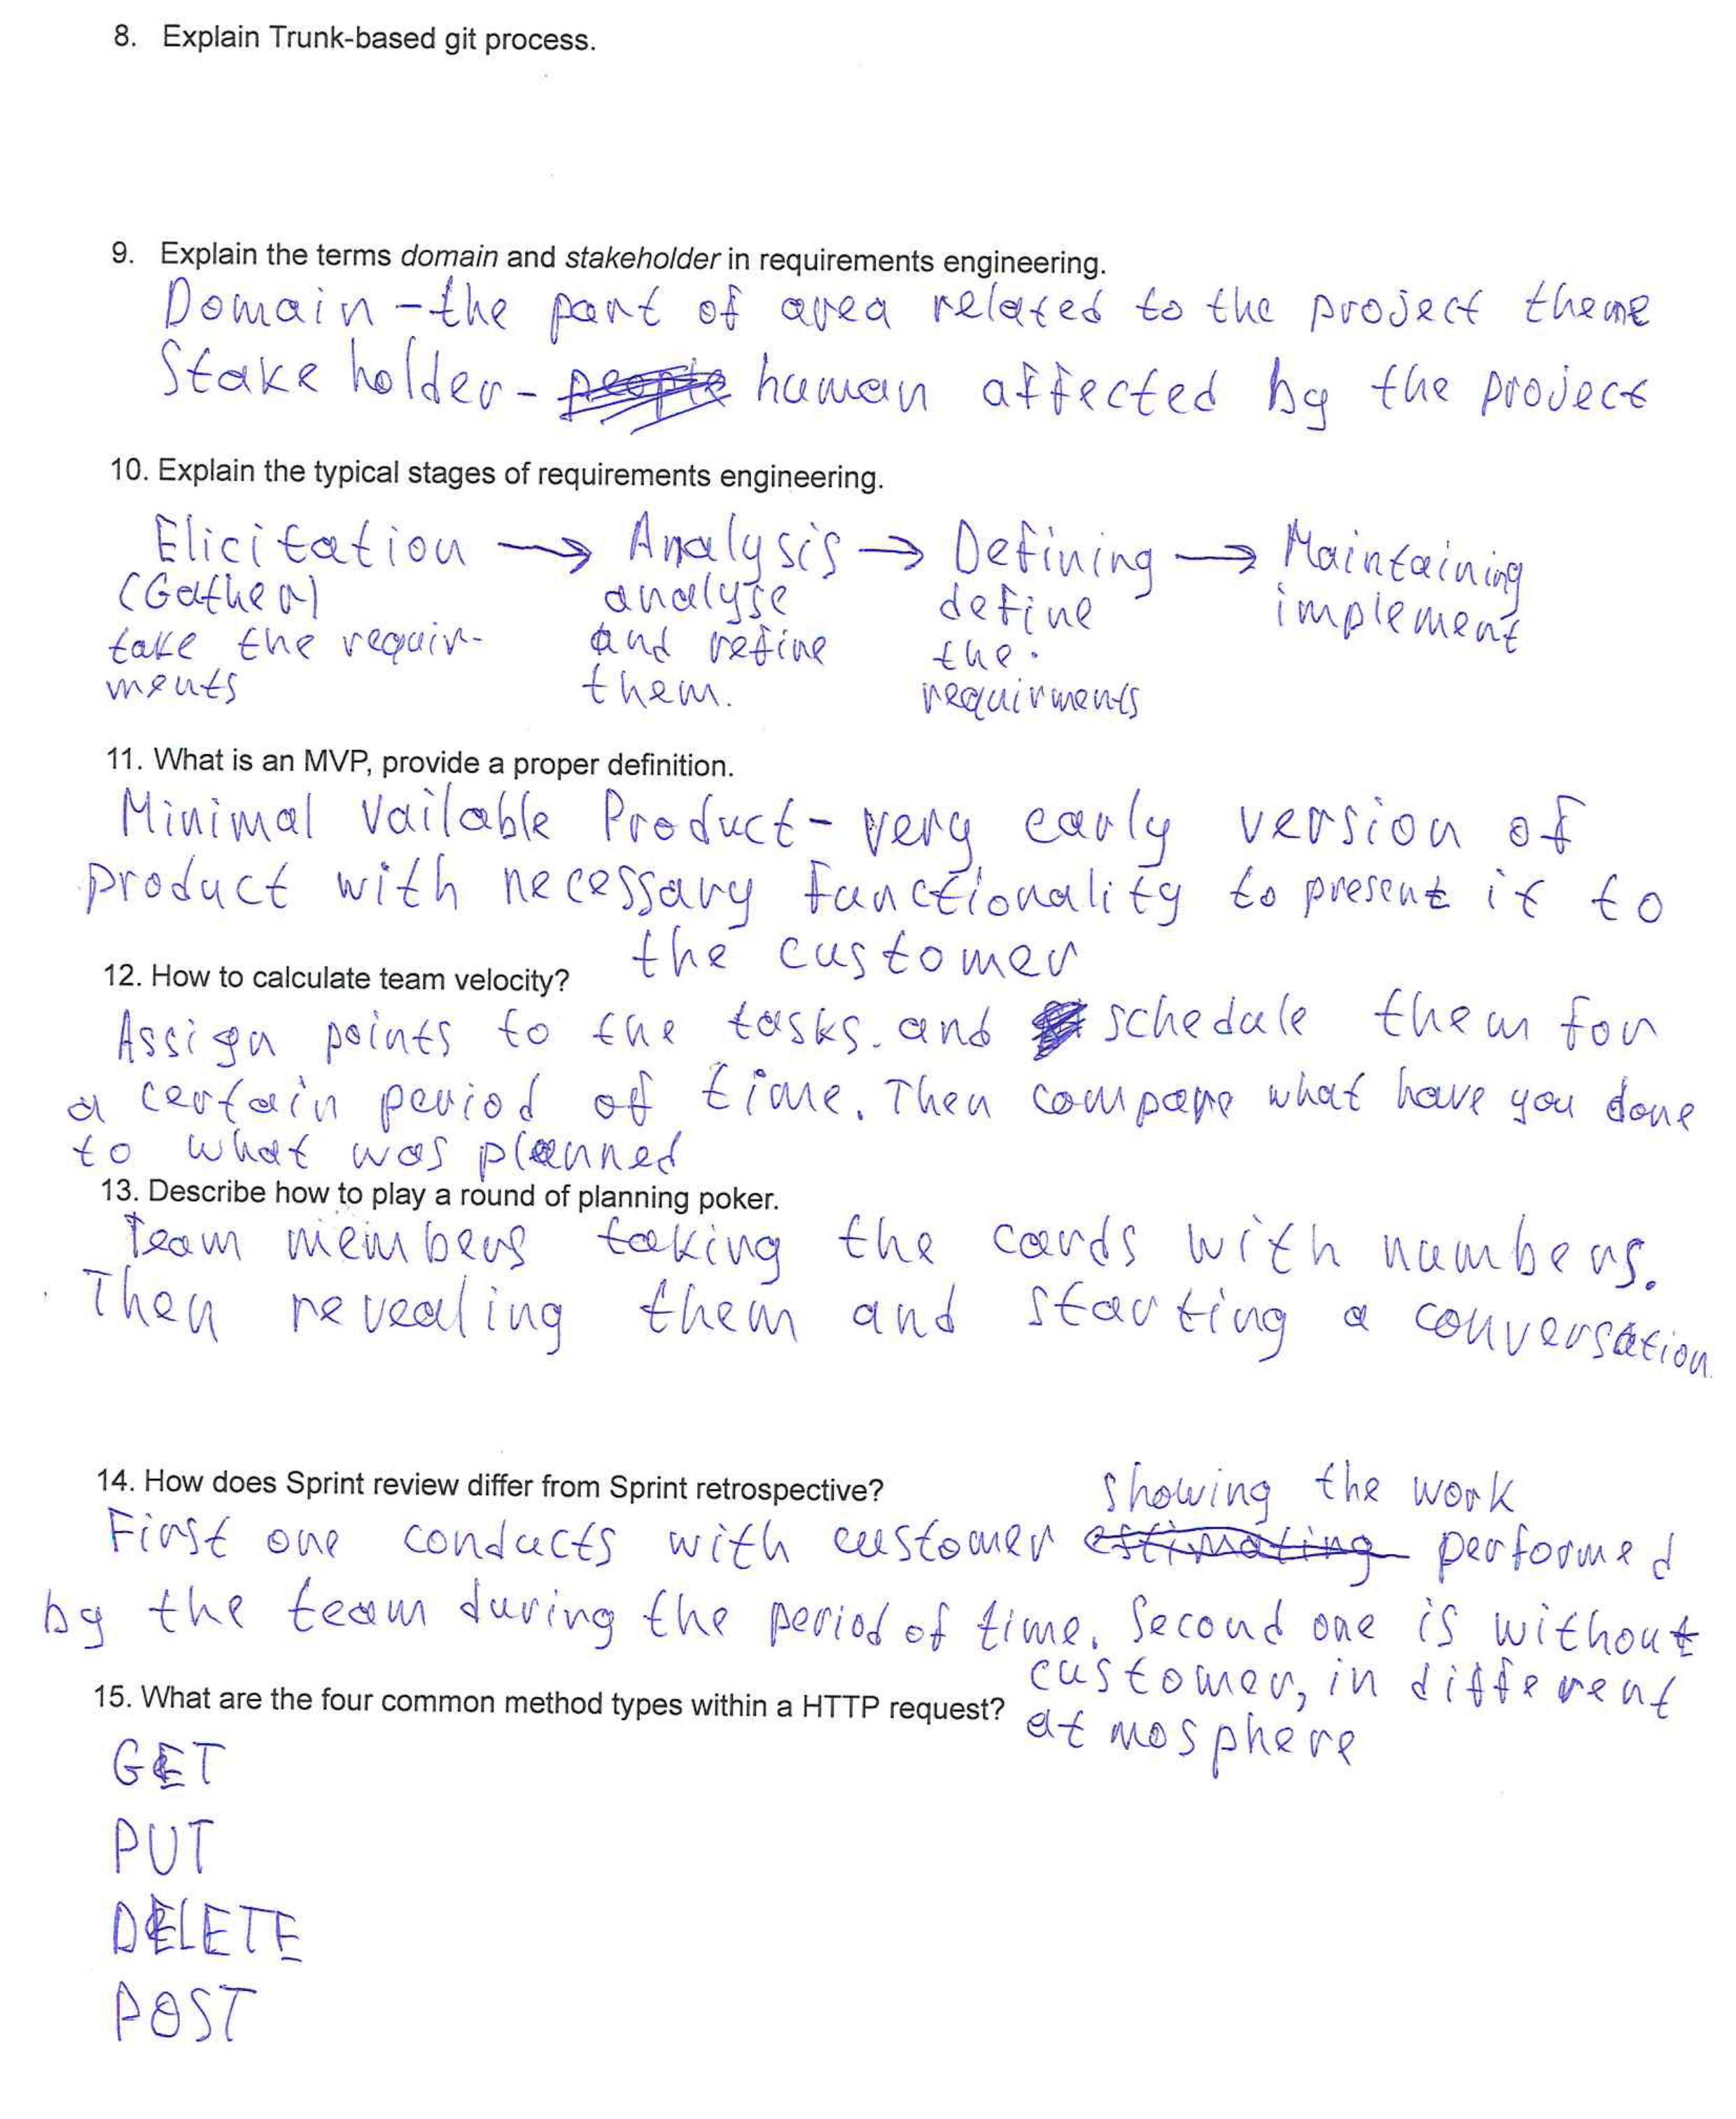 8. Explain Trunk-based git process.
9. Explain the terms domain and stakeholder in requirements engineering.
Domain - the part of area related to the project theme
Stake holder - people human affected by the project
10. Explain the typical stages of requirements engineering.
Elicitation → Analysis → Defining → Maintaining
(Gather) analyse define implement
take the requir- and refine the
ments them. requirments
11. What is an MVP, provide a proper definition.
Minimal Vailable Product - very early version of
product with necessary functionality to present it to
the customer
12. How to calculate team velocity?
Assign points to the tasks. and schedule them for
a certain period of time. Then compare what have you done
to what was planned
13. Describe how to play a round of planning poker.
Team members taking the cards with numbers.
Then revealing them and starting a conversation
14. How does Sprint review differ from Sprint retrospective?
showing the work
First one conducts with customer estimating performed
by the team during the period of time. Second one is without
customer, in different
15. What are the four common method types within a HTTP request?
atmosphere
GET
PUT
DELETE
POST